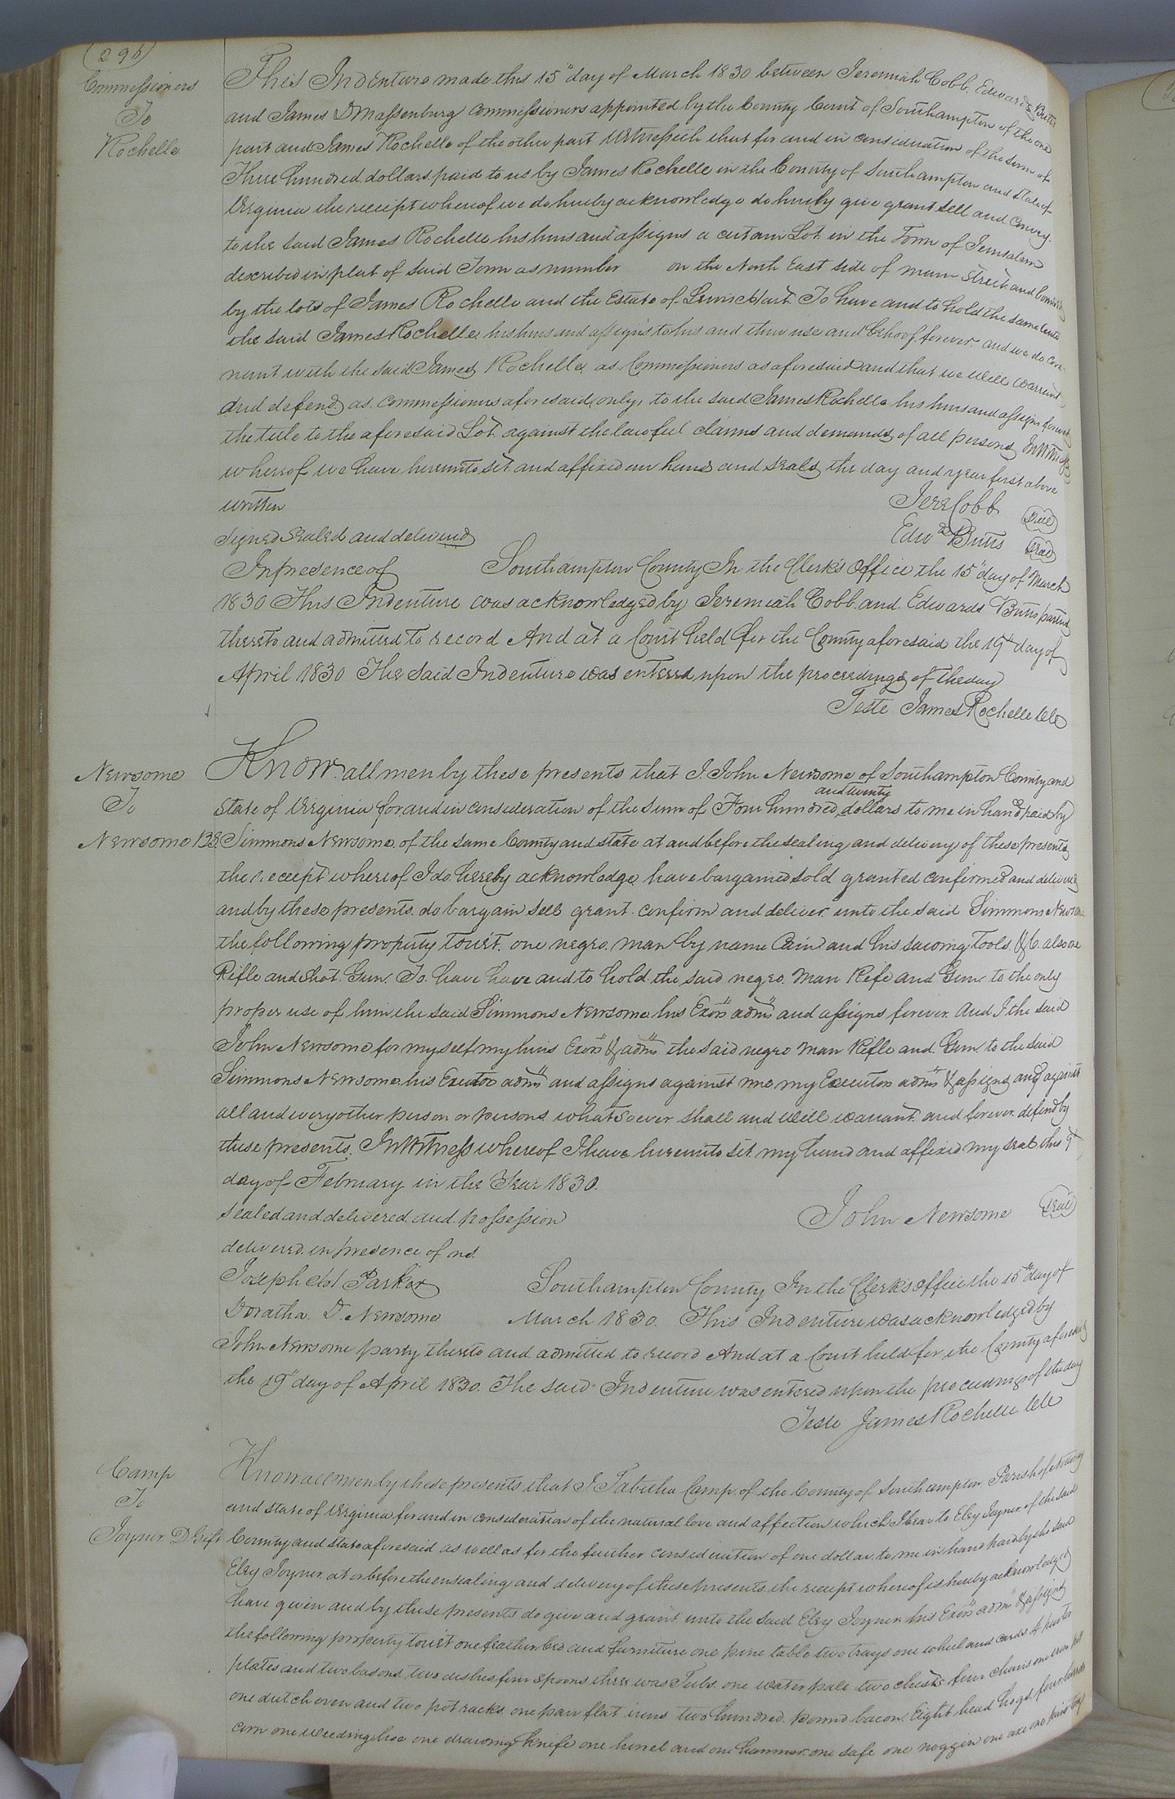 (298)
Commissioners
To
Rochelle
This Indenture made this 15th day of March 1830 between Jeremiah Cobb, Edwards Butts
and James D Massenburg Commissioners appointed by the County Court of Southampton of the one
part and James Rochelle of the other part Witnesseth that for and in consideration of the sum of
Three hundred dollars paid to us by James Rochelle in the County of Southampton and State of
Virginia the receipt whereof we do hereby acknowledge do hereby give grant sell and convey
to the said James Rochelle his heirs and assigns a certain Lot in the Town of Jerusalem
described in plat of said Town as number on the North East side of main Street and
by the lots of James Rochelle and the Estate of Lewis Hart. To have and to hold the same unto
the said James Rochelle his heirs and assigns to his and their use and behoof forever and we do cove
nant with the said James Rochelle as Commissioners as aforesaid and that we will warrant
and defend as Commissioners aforesaid only, to the said James Rochelle his heirs and assigns forever
the title to the aforesaid Lot against the lawful claims and demands of all persons In Witness
whereof we have hereunto set and affixed our hands and seals the day and year first above
written
Jere Cobb Seal
Signed Sealed and delivered
Edwds Butts Seal
In presence of
Southampton County In the Clerk's Office the 15th day of March
1830 This Indenture was acknowledged by Jeremiah Cobb and Edwards Butts parties
thereto and admitted to record And at a Court held for the County aforesaid the 19th day of
April 1830 The Said Indenture was entered upon the proceedings of the day
Teste James Rochelle Clk
Newsome
To
Newsome
Know all men by these presents that I John Newsome of Southampton County and
and twenty
State of Virginia for and in consideration of the sum of Four hundred dollars to me in hand paid by
Simmons Newsome of the same County and state at and before the sealing and delivery of these presents
the receipt whereof I do hereby acknowledge have bargained sold granted confirmed and delivered
and by these presents do bargain sell grant confirm and deliver unto the said Simmons Newsome
the following property towit. one negro man by name and his Tools &c. also one
Rifle and Shot Gun. To have have and to hold the said negro man Rife and Gun to the only
proper use of him the said Simmons Newsome his Exors admrs and assigns forever And I the said
John Newsome for myself my heirs Exors & admrs the said negro man Rifle and Gun to the said
Simmons Newsome his Exutor admrs and assigns against me my Executor admrs & assigns and against
all and every other person or persons whatsoever shall and will warrant and forever defend by
these presents. In Witness whereof I have hereunto set my hand and affixed my seal this 9th
day of February in the Year 1830.
Sealed and delivered and possession
John Newsome Seal
delivered in presence of us
Joseph Parker
Doratha D. Newsome
Southampton County In the Clerks office the 15th day of
March 1830. This Indenture was acknowledged by
John Newsome party thereto and admitted to record And at a Court held for the County aforesaid
the 19th day of April 1830. The said Indenture was entered upon the proceedings of the day
Teste James Rochelle Clk
Camp
To
Joyner D Gift
Know all men by these presents that I Tabitha Camp of the County of Southampton Parish of Nottoway
and State of Virginia for and in consideration of the natural love and affection which I bear to Elsy Joyner of the said
County and State aforesaid as well as for the further consideration of one dollar to me in hand paid by the said
Elsy Joyner at or before the ensealing and delivery of these presents the receipt whereof is hereby acknowledged
have given and by these presents do give and grant unto the said Elsy Joyner his Exors admrs & assigns
the following property towit one feather bed and furniture one pine table two trays one wheel and cards
plates and two basons two dishes four spoons three was Tubs one water pale two chests four chairs one iron pot
one dutch oven and two pot racks one pair flat irons two hundred pound bacon Eight head hogs four barrels
corn one weeding hoe one drawing knife one and one hammer one safe one noggin one axe one pair